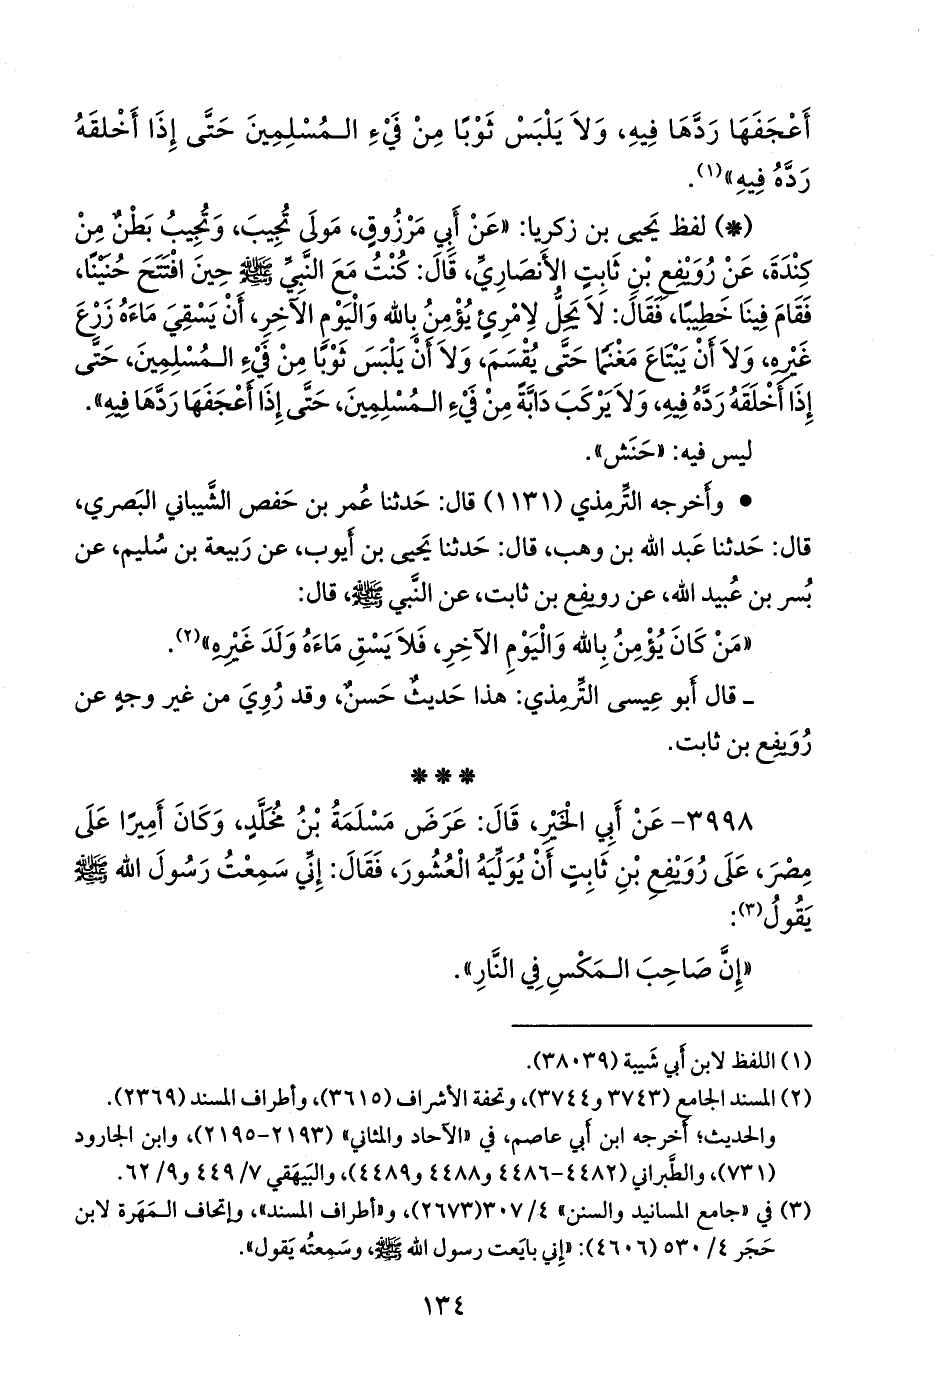 أَعْجَفَهَا رَدَّهَا فِيهِ، وَلاَ يَلْبَسْ ثَوْبًا مِنْ فَيْءِ الـمُسْلِمِينَ حَتَّى إِذَا أَخْلقَهُ
رَدَّهُ فِيهِ»(١).
(*) لفظ يَحيى بن زكريا: «عَنْ أَبِي مَرْزُوقٍ، مَولَى تُجِيبَ، وَتُجِيبُ بَطْنٌ مِنْ
كِنْدَةَ، عَنْ رُوَيْفِعِ بْنِ ثَابِتٍ الأَنصَارِيِّ، قَالَ: كُنْتُ مَعَ النَّبِيِّ ﷺ حِينَ افْتَتَحَ حُنَيْنًا،
فَقَامَ فِينَا خَطِيبًا، فَقَالَ: لاَ يَحِلُّ لِامْرِئٍ يُؤْمِنُ بِالله وَالْيَوْمِ الآخِرِ، أَنْ يَسْقِيَ مَاءَهُ زَرْعَ
غَيْرِهِ، وَلاَ أَنْ يَبْتَاعَ مَغْنَمًا حَتَّى يُقْسَمَ، وَلاَ أَنْ يَلْبَسَ ثَوْبًا مِنْ فَيْءِ الـمُسْلِمِينَ، حَتَّى
إِذَا أَخْلَقَهُ رَدَّهُ فِيهِ، وَلاَ يَرْكَبَ دَابَّةً مِنْ فَيْءِ الـمُسْلِمِينَ، حَتَّى إِذَا أَعْجَفَهَا رَدَّهَا فِيهِ».
ليس فيه: «حَنَش».
• وأَخرجه التِّرمِذي (١١٣١) قال: حَدثنا عُمر بن حَفص الشَّيباني البَصري،
قال: حَدثنا عَبد الله بن وهب، قال: حَدثنا يَحيى بن أَيوب، عن رَبيعة بن سُليم، عن
بُسر بن عُبيد الله، عن رويفِع بن ثابت، عن النَّبي ﷺ، قال:
«مَنْ كَانَ يُؤْمِنُ بِالله وَالْيَوْمِ الآخِرِ، فَلاَ يَسْقِ مَاءَهُ وَلَدَ غَيْرِهِ»(٢).
ـ قال أَبو عِيسى التِّرمِذي: هذا حَديثٌ حَسنٌ، وقد رُوِيَ من غير وجهٍ عن
رُوَيفِع بن ثابت.
* * *
٣٩٩٨- عَنْ أَبِي الْخَيْرِ، قَالَ: عَرَضَ مَسْلَمَةُ بْنُ مُخَلَّدٍ، وَكَانَ أَمِيرًا عَلَى
مِصْرَ، عَلَى رُوَيْفِعِ بْنِ ثَابِتٍ أَنْ يُوَلِّيَهُ الْعُشُورَ، فَقَالَ: إِنِّي سَمِعْتُ رَسُولَ الله ﷺ
يَقُولُ(٣):
«إِنَّ صَاحِبَ الـمَكْسِ فِي النَّارِ».
(١) اللفظ لابن أَبي شَيبة (٣٨٠٣٩).
(٢) المسند الجامع (٣٧٤٣ و٣٧٤٤)، وتحفة الأشراف (٣٦١٥)، وأطراف المسند (٢٣٦٩).
والحديث؛ أَخرجه ابن أَبي عاصم، في «الآحاد والمثاني» (٢١٩٣-٢١٩٥)، وابن الجارود
(٧٣١)، والطَّبراني (٤٤٨٢-٤٤٨٦ و٤٤٨٨ و٤٤٨٩)، والبَيهَقي ٧/ ٤٤٩ و٩/ ٦٢.
(٣) في «جامع المسانيد والسنن» ٤/ ٣٠٧(٢٦٧٣)، و«أطراف المسند»، وإتحاف الـمَهَرة لابن
حَجَر ٤/ ٥٣٠ (٤٦٠٦): «إِني بايَعت رسول الله ﷺ، وسَمِعتُه يَقول».
١٣٤